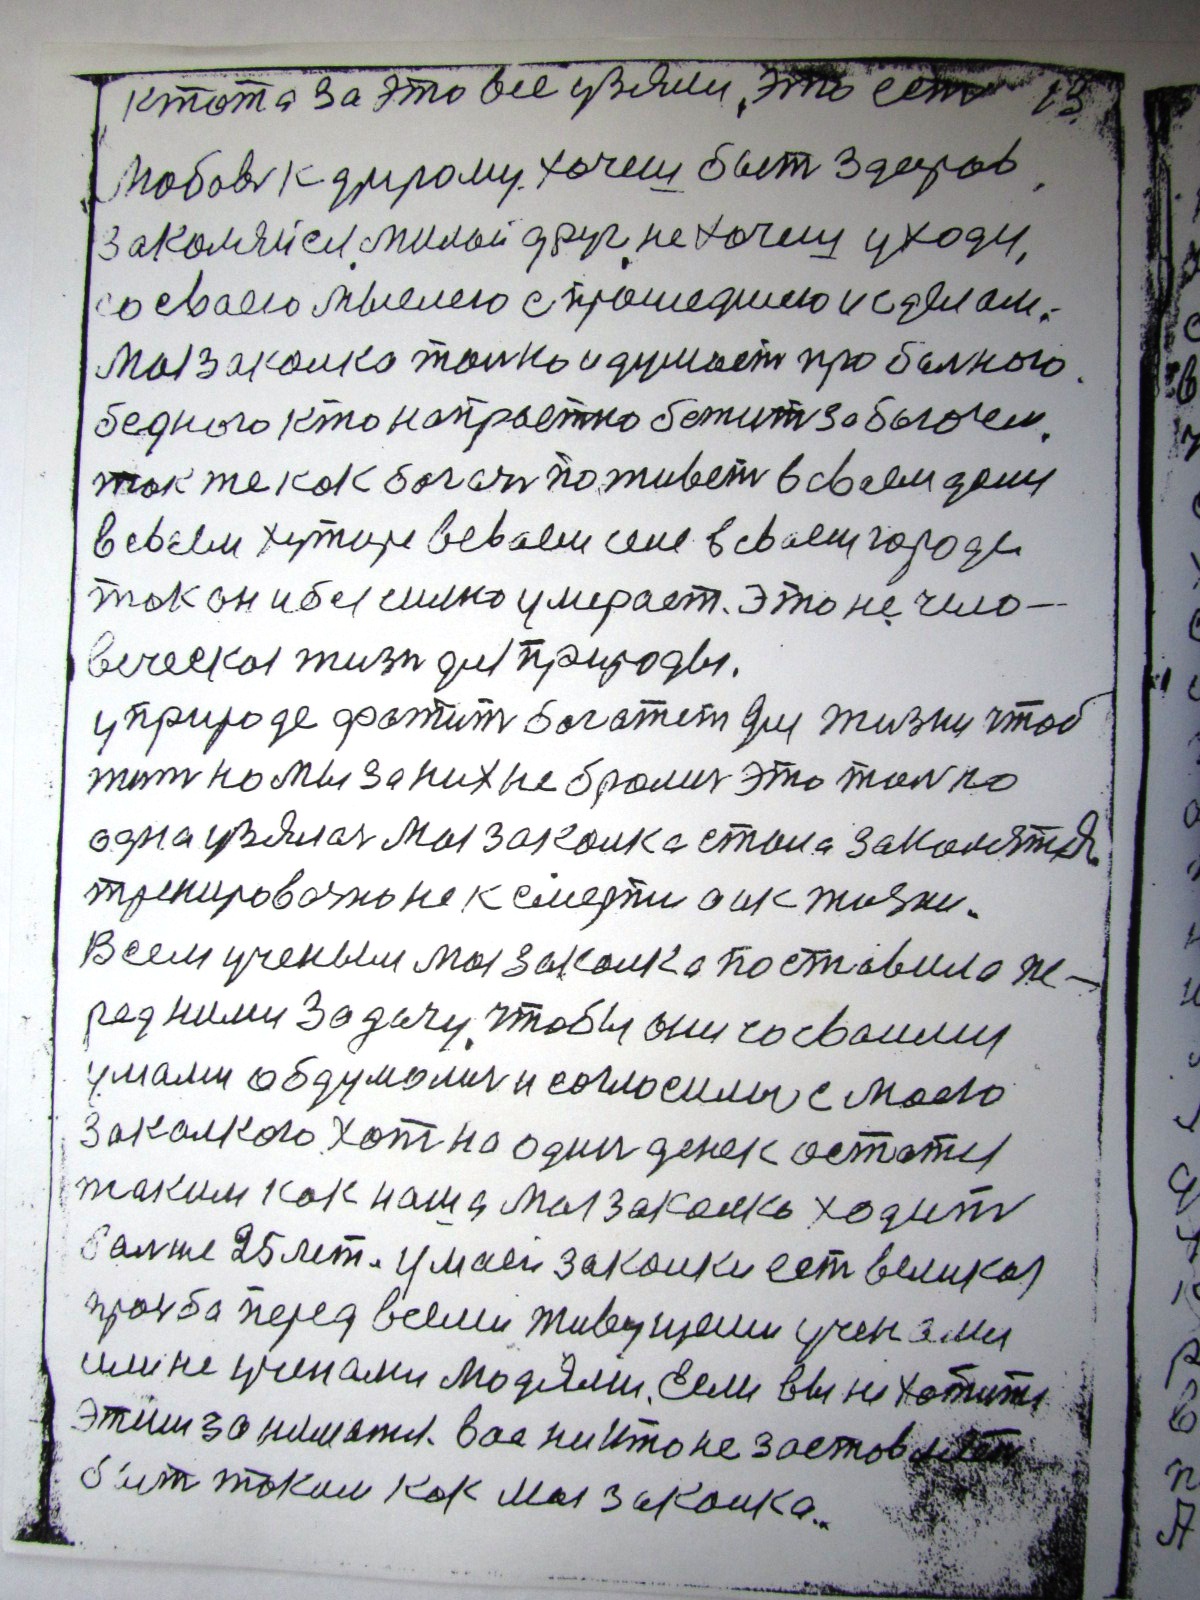 ктота за это все узяли, это ест 13.
Любовь к другому. хочеш быт здоров,
закаляйся. милой друг, не хочеш уходи,
со сваею мыслею с прошедшею и сделам.
Моя закалка толко и думает про балного
бедного кто напрастно бежит за богочем.
так же как богач поживет в сваем доми
в сваем хуторе в сваем селе в сваем городе
так он и бессилно умерает. Это не чело—
веческая жизн для природы.
у природе фатит богатств для жизни чтоб
жит но мы за них не бралис это толко
одна узялас моя закалка стала закалятся
тренировачно не к смерти а к жизни.
Всем ученым моя закалка поставила пе—
ред ними задачу, чтобы они со сваими
умами обдумалис и согласилис с маею
закалкою. хот на один денек остатся
таким как наша моя закалка ходит
балше 25 лет. у маей закалки ест великая
прозба перед всеми живущеми ученами
или не ученами людями. Если вы ни хотите
этим заниматся. вас никто не заставляет
быт таким как моя закалка..